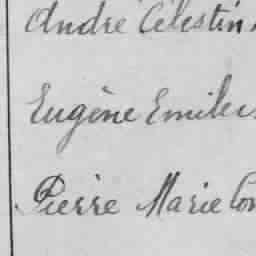 André Célestin
Eugène Emile
Pierre Marie